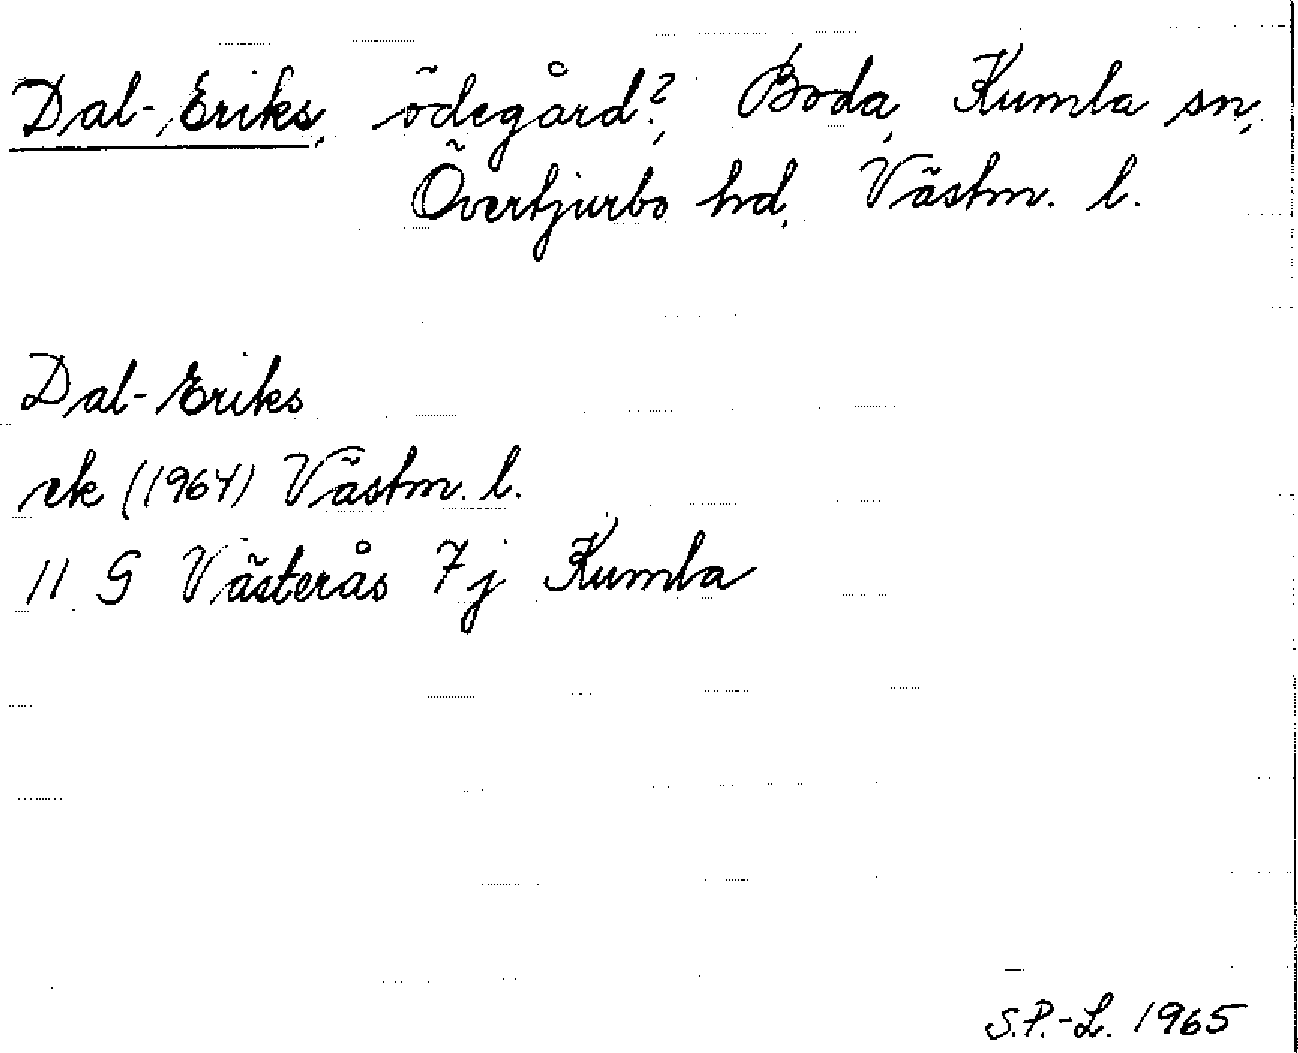 Dal-Eriks, ödegård?, Boda, Kumla sn,
Övertjurbo hd, Västm. l.
Dal-Eriks
ek (1964) Västm. l.
11 G Västerås 7j Kumla
S.P.-L. 1965